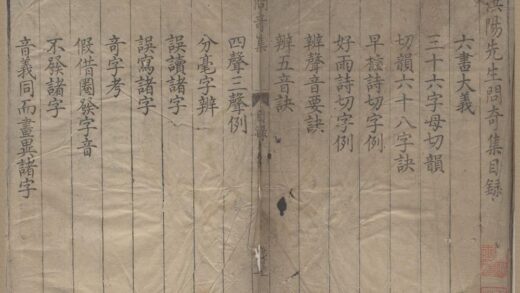 洪陽先生問奇集目錄
六書大義
三十六字母切韻
切韻六十八字訣
早梅詩切字例
好雨詩切字例
辨聲音要訣
辨五音訣
問奇集
目錄
四聲三聲例
分毫字辨
誤讀諸字
誤寫諸字
奇字考
假借圈發字音
不發諸字
音義同而畫異諸字